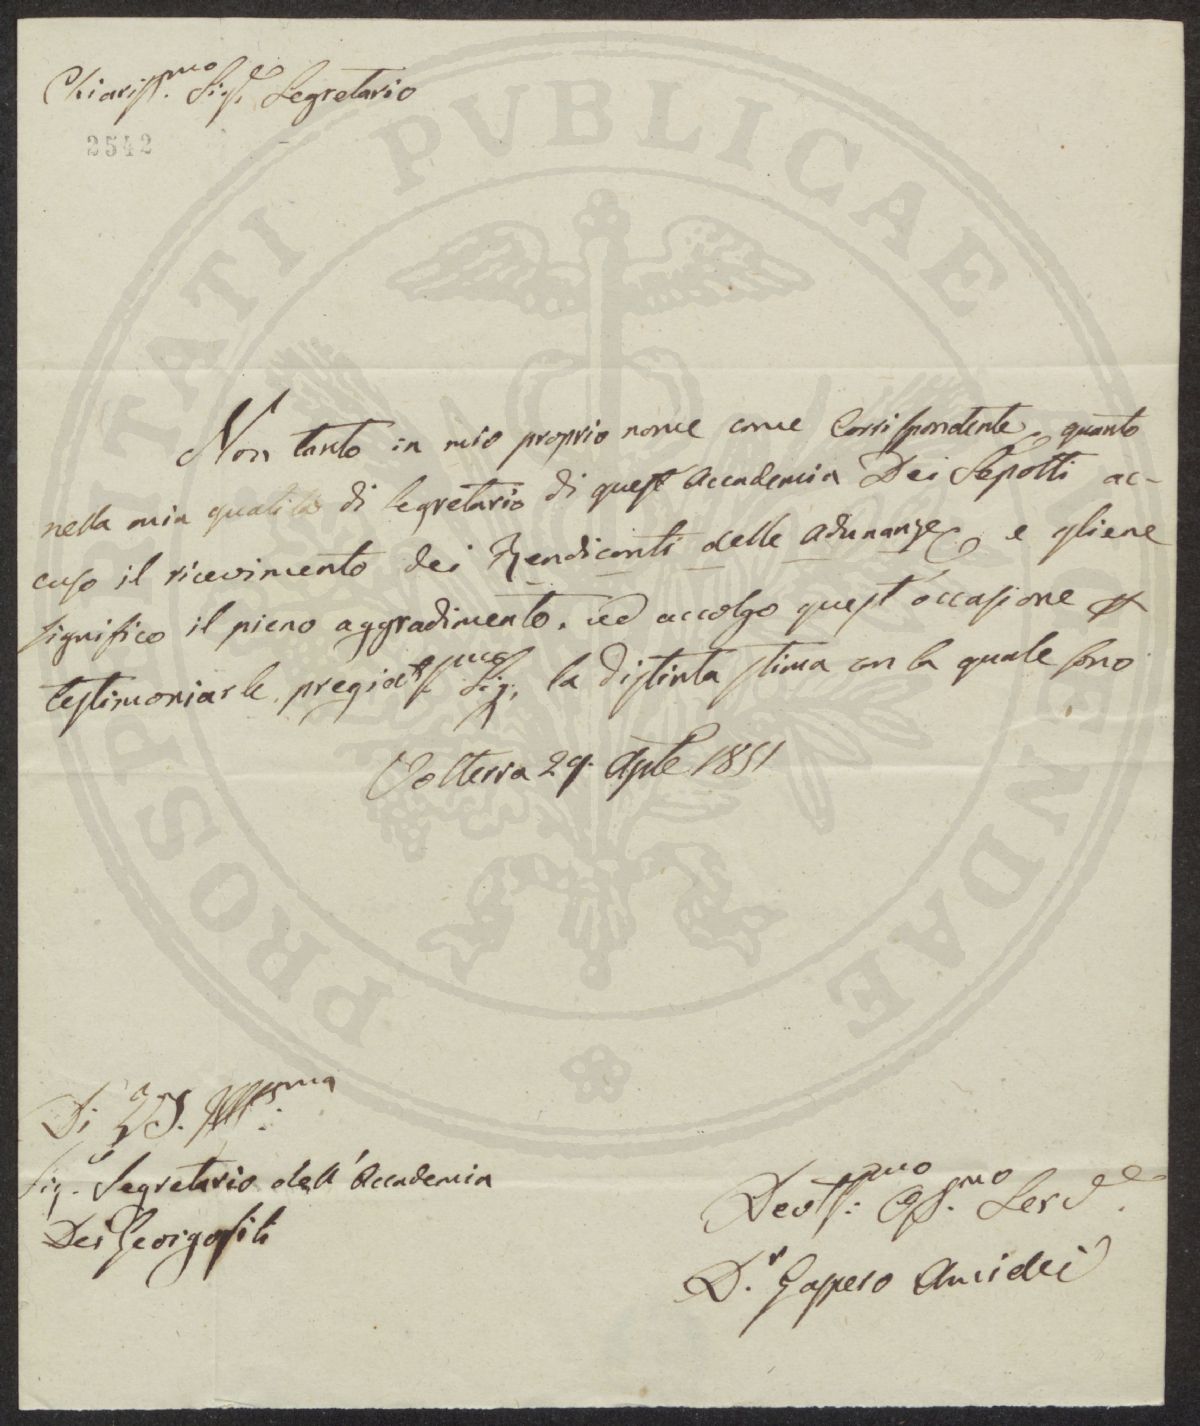 Chiariss.mo Sig.e Segretario
2542
Non tanto in mio proprio nome come Corrispondente, quanto
nella mia qualità di Segretario di quest' Accademia Dei Sepolti ac-
cuso il ricevimento dei Rendiconti delle Adunanze, e gliene
significo il pieno aggradimento. ed accolgo quest' occasione
testimoniarle, pregiatiss.mo Sig. la distinta stima con la quale sono
Volterra 29. Aprle 1851
Di VS. Illss.ma
Sig.e Segretario dell' Accademia
Dei Georgofili
Devotss.mo Oss.mo Serv.e
D.r Gaspero Amidei
PROSPERITATI PVBLICAE AVGENDAE